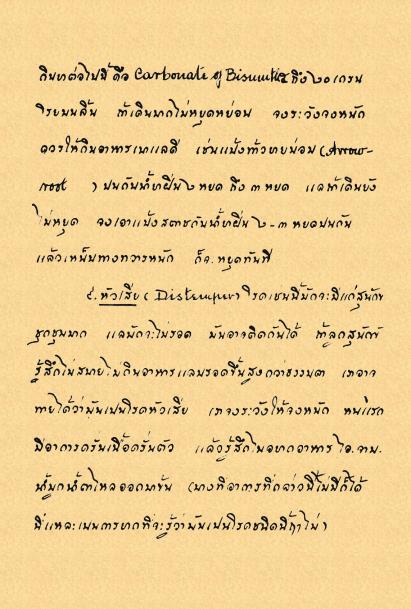 กินยาต่อไปนี้ คือ Carbonate of Bismuth ๕ ถึง ๒๐ เกรน
โรยบนลิ้น ถ้าเดินมากไม่หยุดหย่อน จงระวังจงหนัก
ควรให้กินอาหารเหลวดี เช่นแป้งท้าวยายม่อม (Arrow-
root) ปนกับน้ำฝิ่น ๒ หยด ถึง ๓ หยด แลถ้าเดินยัง
ไม่หยุด จงเอาแป้งสตาชกับน้ำฝิ่น ๒-๓ หยดปนกัน
แล้วเหน็บทางทวารหนัก ก็จะหยุดทันที
๕. หัวเสีย (Distemper) โรคเช่นนี้มักจะมีแก่สุนัข
ชุกชุมมาก แลมักจะไม่รอด มันอาจติดกันได้ ถ้าลูกสุนัข
รู้สึกไม่สบาย ไม่กินอาหาร แลปรอดขึ้นสูงกว่าธรรมดา เราอาจ
ทายได้ว่ามันเปนโรคหัวเสีย เราจงระวังให้จงหนัก หนแรก
มีอาการครั่นเนื้อครั่นตัว แล้วรู้สึกไม่อยากอาหาร ไอ, จาม,
น้ำมูกน้ำตาไหลออกมาข้น (บางทีอาการที่กล่าวนี้ไม่มีก็ได้
นี่แหละเปนการยากที่จะรู้ว่ามันเปนโรคชนิดนี้ฤๅไม่)